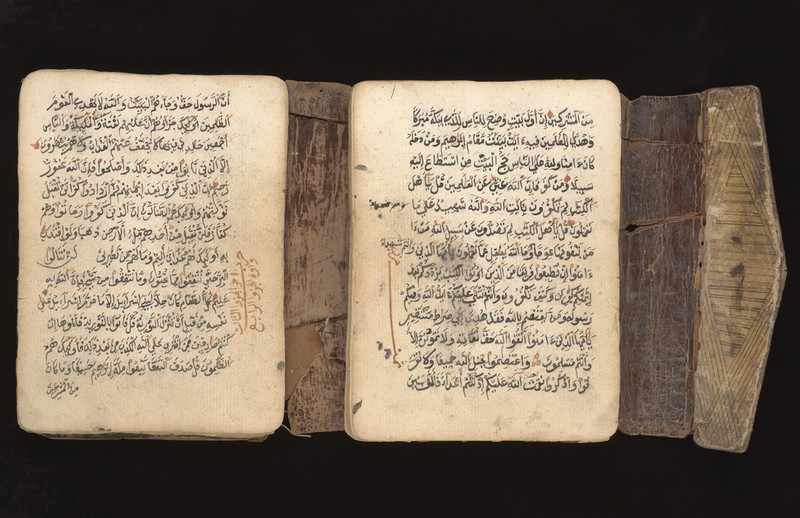 أن الرسول حق وجاءهم البينت والله لا يهدي القوم
الظلمين أوليك جزاؤهم أن عليهم لعنة الله والمليكة والناس
أجمعين خلدين فيها لا يخفف عنهم العذاب ولا هم ينظرون
إلا الذين تابوا من بعد ذلك وأصلحوا فإن الله غفور
رحيم إن الذين كفروا بعد إيمنهم ثم ازدادوا كفرا لن تقبل
توبتهم وأوليك هم الضالون إن الذين كفروا وماتوا وهم
كفار فلن يقبل من أحدهم ملء الأرض ذهبا ولو افتدى
به أوليك لهم عذاب أليم وما لهم من نصرين لن تنالوا
البر حتى تنفقوا مما تحبون وما تنفقوا من شيء فإن الله به
عليم كل الطعام كان حلا لبني إسرائيل إلا ما حرم إسرائيل على
نفسه من قبل أن تنزل التورية قل فأتوا بالتورية فاتلوها إن
كنتم صدقين فمن افترى على الله الكذب من بعد ذلك فأوليك هم
الظلمون قل صدق الله فاتبعوا ملة إبرهيم حنيفا وما كان
من المشركين
من المشركين إن أول بيت وضع للناس للذي ببكة مبركا
وهدى للعلمين فيه ءايت بينت مقام إبرهيم ومن دخله
كان ءامنا ولله على الناس حج البيت من استطاع إليه
سبيلا ومن كفر فإن الله غني عن العلمين قل يأهل
الكتب لم تكفرون بايت الله والله شهيد على ما
تعملون قل يأهل الكتب لم تصدون عن سبيل الله من ءا
من تبغونها عوجا وأنتم شهداء وما الله بغفل عما تعملون يأيها الذين
ءامنوا إن تطيعوا فريقا من الذين أوتوا الكتب يردوكم بعد
إيمنكم كفرين وكيف تكفرون وأنتم تتلى عليكم ءايت الله وفيكم
رسوله ومن يعتصم بالله فقد هدي إلى صرط مستقيم
يأيها الذين ءامنوا اتقوا الله حق تقاته ولا تموتن إلا
وأنتم مسلمون واعتصموا بحبل الله جميعا ولا تفر
قوا واذكروا نعمت الله عليكم إذ كنتم أعداء فألف بين